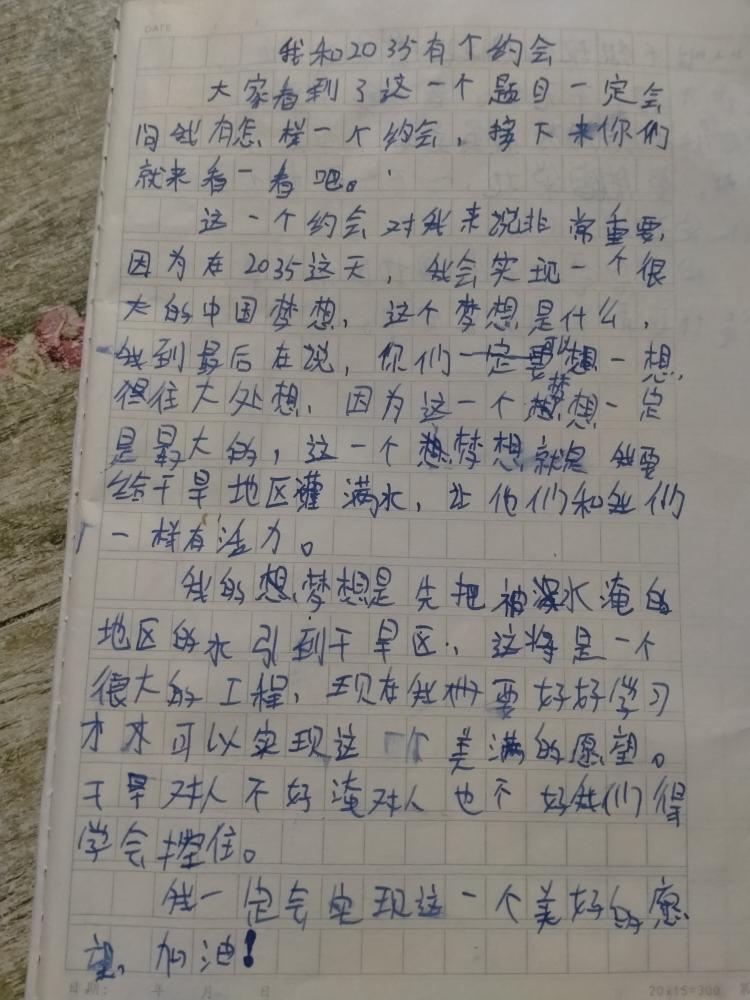 DATE
我和2035有个约会
大家看到了这一个题目一定会
问我有怎样一个约会，接下来你们
就来看一看吧。
这一个约会对我来说非常重要，
因为在2035这天，我会实现一个很
大的中国梦想，这个梦想是什么，
我到最后在说，你们可以想一想，
得往大处想，因为这一个梦想一定
是最大的，这一个梦想就是我要
给干旱地区灌满水，让他们和我们
一样有活力。
我的想梦想是先把被水淹的
地区的水引到干旱区，这将是一个
很大的工程，现在我要好好学习
才可以实现这个美满的愿望。
干旱对人不好淹对人也不好我们得
学会住。
我一定会实现这一个美好的愿
望，加油！
日期： 年 月 日
20×15=300